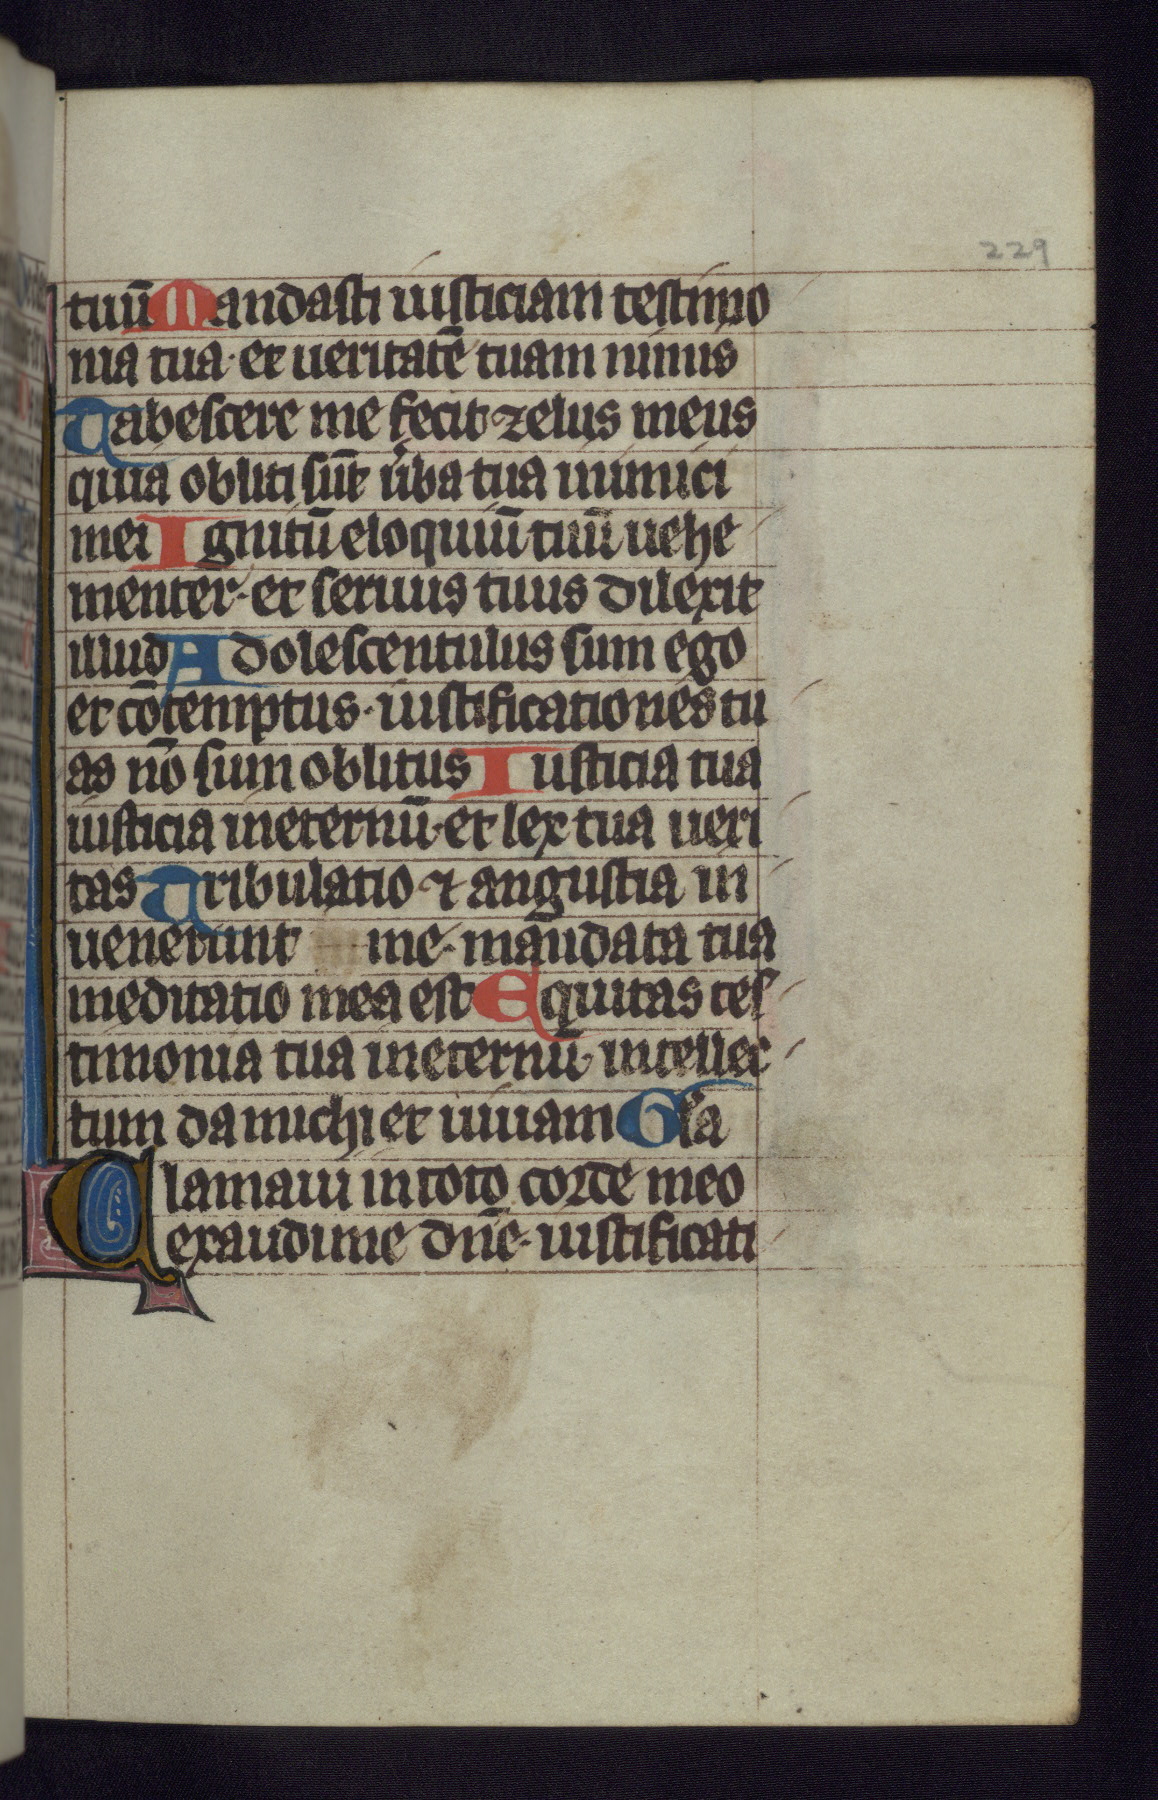 229
tuū Mandasti iusticiam testimo
nia tua· et ueritatē tuam nimis
Tabescere me fecit zelus meus
quia obliti sūt ūba tua inimici
mei Ignitū eloquiū tuū uehe
menter· et seruus tuus dilexit
illud Adolescentulus sum ego
et cōtemptus· iustificationes tu
as nō sum oblitus Iusticia tua
iusticia in eternū· et lex tua ueri
tas Tribulatio ⁊ angustia in
uenerunt me· mandata tua
meditatio mea est Equitas tes
timonia tua in eternū· intellec
tum da michi et uiuam Gla
Clamaui in toto corde meo
exaudi me dn̄e· iustificati